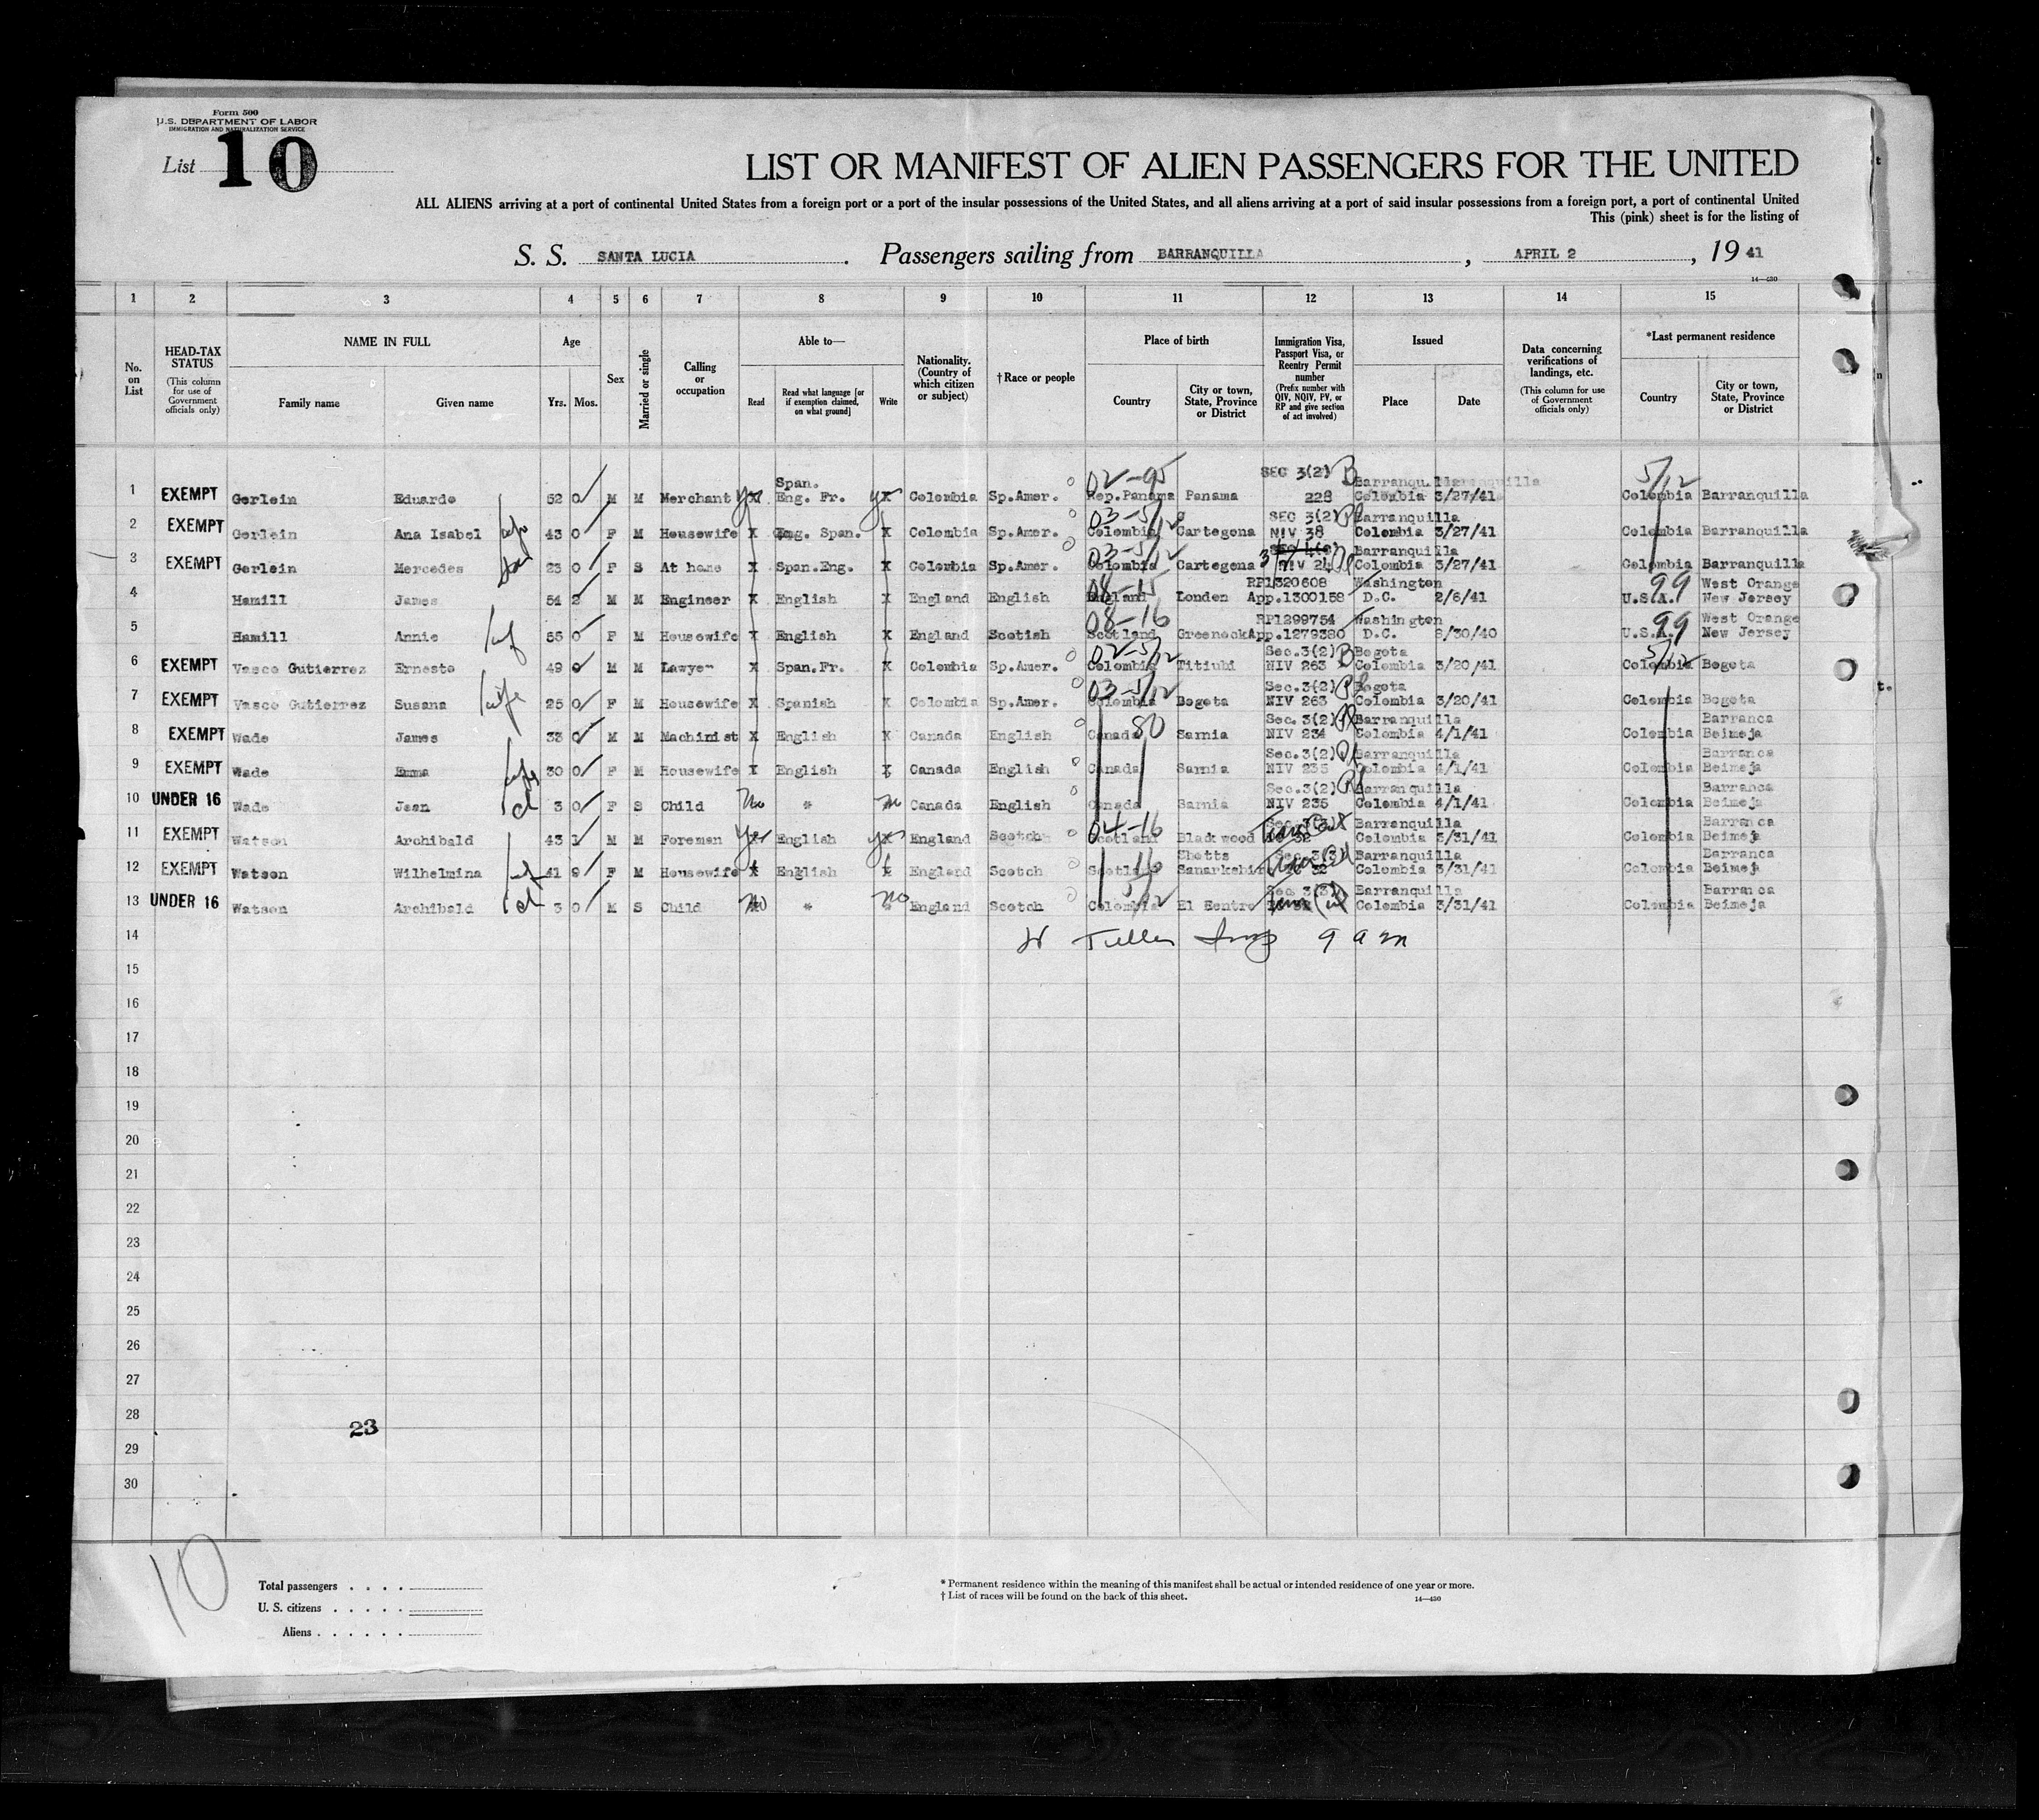 Form 500
U.S. DEPARTMENT OF LABOR
IMMIGRATION AND NATURALIZATION SERVICE
List 10
LIST OR MANIFEST OF ALIEN PASSENGERS FOR THE UNITED
ALL ALIENS arriving at a port of continental United States from a foreign port or a port of the insular possessions of the United States, and all aliens arriving at a port of said insular possessions from a foreign port, a port of continental United
This (pink) sheet is for the listing of
S. S. SANTA LUCIA. Passengers sailing from BARRANQUILLA, APRIL 2, 19 41
14—430
1 2 3 4 5 6 7 8 9 10 11 12 13 14 15
No. on List
HEAD-TAX STATUS (This column for use of Government officials only)
NAME IN FULL
Family name Given name
Age
Yrs. Mos.
Sex
Married or single
Calling or occupation
Able to—
Read Read what language [or if exemption claimed, on what ground] Write
Nationality. (Country of which citizen or subject)
†Race or people
Place of birth
Country City or town, State, Province or District
Immigration Visa, Passport Visa, or Reentry Permit number (Prefix number with QIV, NQIV, PV, or RP and give section of act involved)
Issued
Place Date
Data concerning verifications of landings, etc. (This column for use of Government officials only)
*Last permanent residence
Country City or town, State, Province or District
02-95 SEC 3(2) Barranquilla 5/12
1 EXEMPT Gerlein Eduardo 52 0 M M Merchant yes X Span. Eng. Fr. yes X Colombia Sp.Amer. Rep.Panama Panama 228 Colombia 3/27/41 Colombia Barranquilla
03-5/12 SEC 3(2) Barranquilla
2 EXEMPT Gerlein Ana Isabel wife 43 0 F M Housewife X Eng. Span. X Colombia Sp.Amer. Colombia Cartegena NIV 38 Colombia 3/27/41 Colombia Barranquilla
03-5/12 Barranquilla
3 EXEMPT Gerlein Mercedes 23 0 F S At home X Span.Eng. X Colombia Sp.Amer. Colombia Cartegena NIV 24 Colombia 3/27/41 Colombia Barranquilla
08-15 RP1320608 Washington 99 West Orange
4 Hamill James 54 2 M M Engineer X English X England English England London App.1300158 D.C. 2/6/41 U.S.A. New Jersey
08-16 RP1299754 Washington 99 West Orange
5 Hamill Annie wf 56 0 F M Housewife X English X England Scotish Scotland Greenock App.1279380 D.C. 8/30/40 U.S.A. New Jersey
02-5/12 Sec.3(2) Bogota 5/12
6 EXEMPT Vasco Gutierrez Ernesto 49 0 M M Lawyer X Span.Fr. X Colombia Sp.Amer. Colombia Titiubi NIV 263 Colombia 3/20/41 Colombia Bogota
03-5/12 Sec.3(2) Bogota
7 EXEMPT Vasco Gutierrez Susana wife 25 0 F M Housewife X Spanish X Colombia Sp.Amer. Colombia Bogota NIV 263 Colombia 3/20/41 Colombia Bogota
80 Sec. 3(2) Barranquilla Barranca
8 EXEMPT Wade James 33 0 M M Machinist X English X Canada English Canada Sarnia NIV 234 Colombia 4/1/41 Colombia Beimeja
Sec.3(2) Barranquilla Barranca
9 EXEMPT Wade Emma wife 30 0 F M Housewife X English X Canada English Canada Sarnia NIV 235 Colombia 4/1/41 Colombia Beimeja
Sec.3(2) Barranquilla Barranca
10 UNDER 16 Wade Jean cl 3 0 F S Child No * no Canada English Canada Sarnia NIV 235 Colombia 4/1/41 Colombia Beimeja
04-16 Barranquilla Barranca
11 EXEMPT Watson Archibald 43 1 M M Foreman yes English yes X England Scotch Scotland Blackwood 32 Colombia 3/31/41 Colombia Beimeja
16 Shotts Sec.3(3) Barranquilla Barranca
12 EXEMPT Watson Wilhelmina wf 41 9 F M Housewife X English X England Scotch Scotland Sanarkshi 32 Colombia 3/31/41 Colombia Beimeja
5/12 Sec 3(3) Barranquilla Barranca
13 UNDER 16 Watson Archibald cl 3 0 M S Child No * no England Scotch Colombia El Centro Colombia 3/31/41 Colombia Beimeja
14 9 am
15
16
17
18
19
20
21
22
23
24
25
26
27
28 23
29
30
10
Total passengers . . . .
U. S. citizens . . . . .
Aliens . . . . . .
* Permanent residence within the meaning of this manifest shall be actual or intended residence of one year or more.
† List of races will be found on the back of this sheet.
14—430